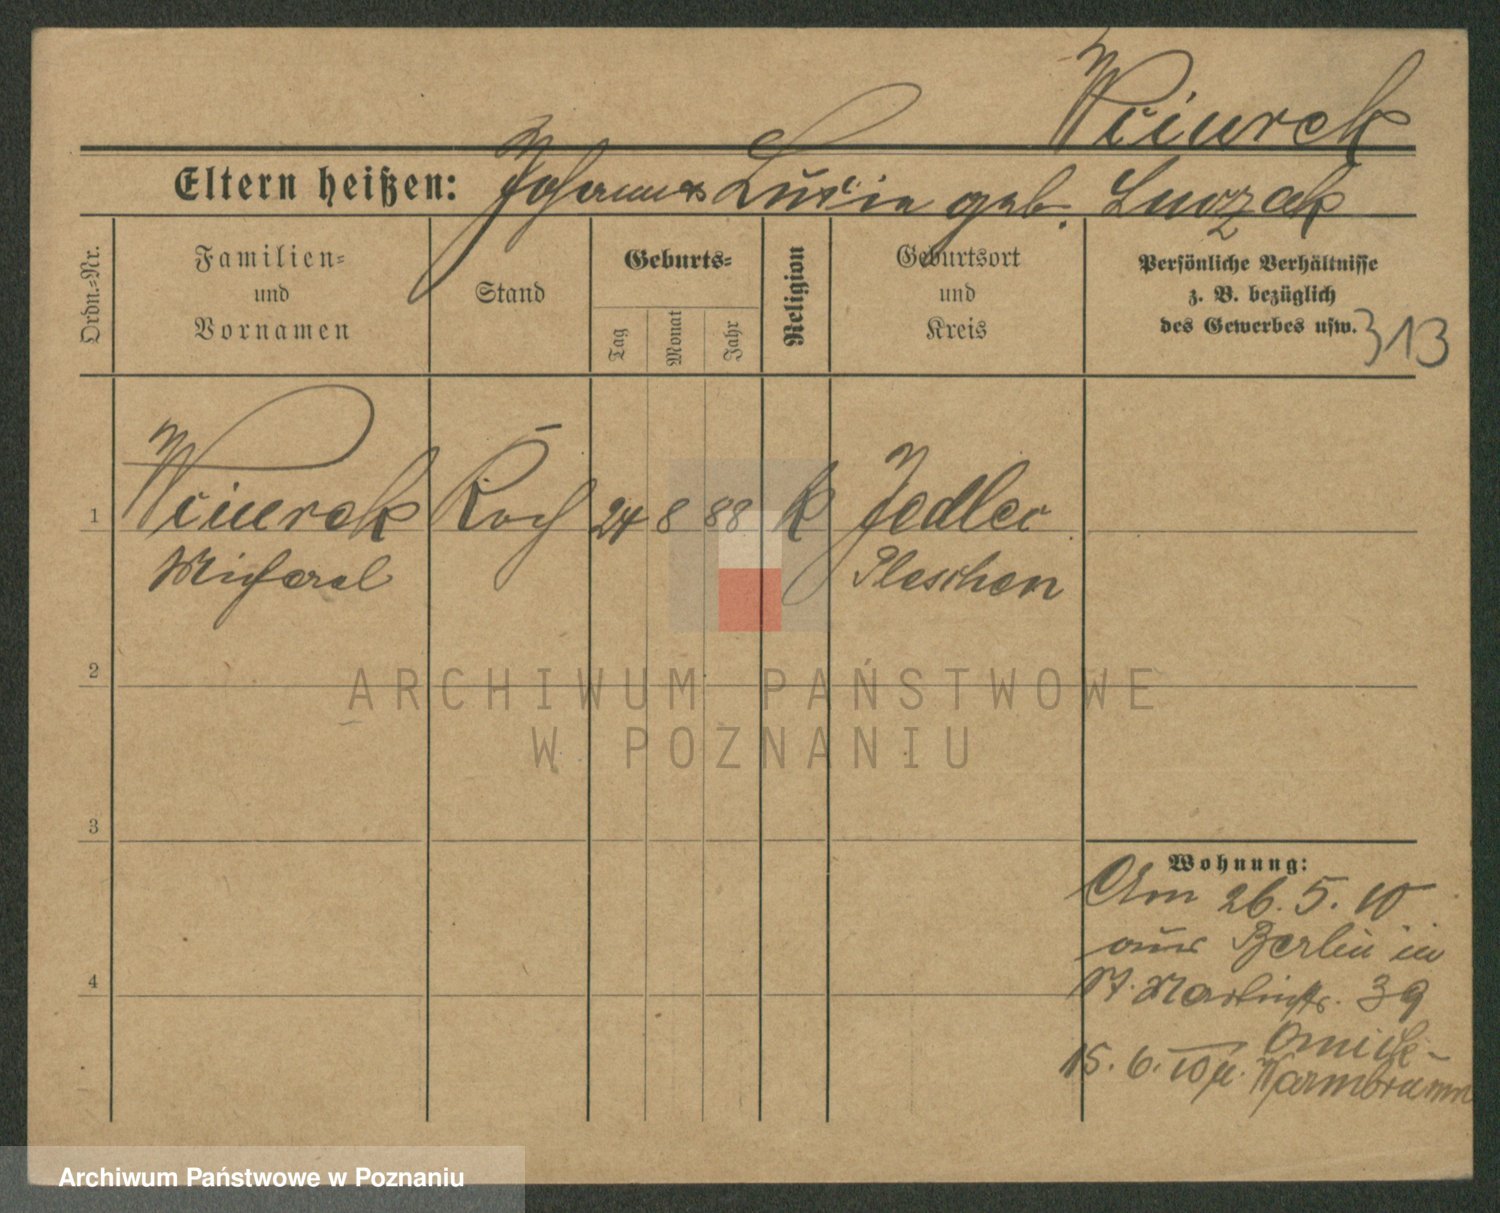 Wciurek
Eltern heißen: Johann Lucie geb. Luczak
Ordn.-Nr.
Familien-
und
Vornamen
Stand
Geburts-
Tag
Monat
Jahr
Religion
Geburtsort
und
Kreis
Persönliche Verhältnisse
z. B. bezüglich
des Gewerbes usw.
313
1
Wciurek Koch 24 8 88 K Jedlec
Michael Pleschen
2
3
4
Wohnung:
Am 26. 5. 10
aus Berlin in
St. Martinstr. 39
15. 6. 10 n. Warmbrunn
ARCHIWUM PAŃSTWOWE
W POZNANIU
Archiwum Państwowe w Poznaniu